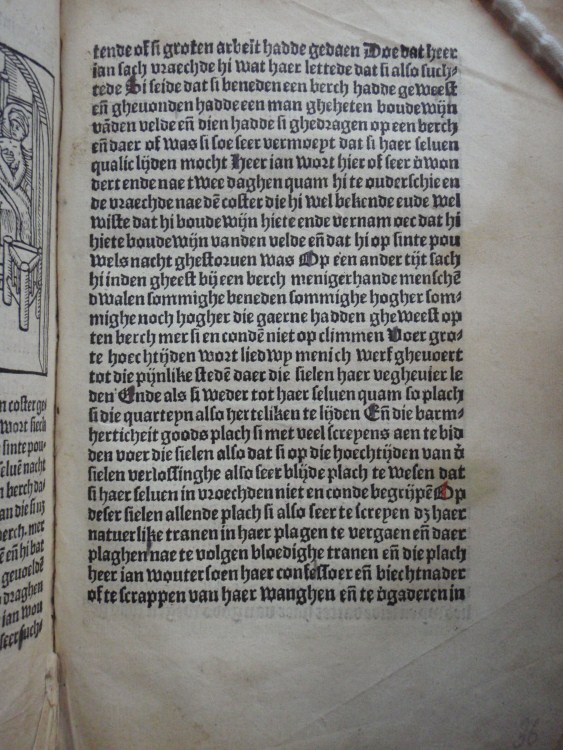 n coster ge⸗
wort siech
sinte pou⸗
selue nacht
n berch da⸗
allen die sijn
berch. met
ē eñ hi bat
geuoelde
draghen
ian wou
seer such⸗
tende of si groten arbeit hadde gedaen Doe dat heer
ian sach vraechde hi wat haer lettede dat si also such⸗
tede Si seide dat si beneden een berch hadde geweest
eñ gheuonden hadde een man gheheten boudewijn
vāden velde eñ dien hadde si ghedragen op een berch
eñ daer of was si soe seer vermoeyt dat si haer seluen
qualic lijden mocht Heer ian wort hier of seer v̄won
dert ende nae twee daghen quam hi te ouderschie en
de vraechde nae dē coster die hi wel bekende eude wel
wiste dat hi boudewijn hiete ende vernam oec dat hi
hiete boudewijn vanden velde eñ dat hi op sinte pou
wels nacht ghestoruen was Op een ander tijt sach
hi inden gheest bij een berch menigerhande menschē
dwalen sommighe beneden sommighe hogher som⸗
mighe noch hogher die gaerne hadden gheweest op
ten berch mer si en condē niet op climmen Voer gro⸗
te hoechtijden wort liedwy menich werf gheuoert
tot die pijnlike stedē daer die sielen haer vegheuier le
den Ende als si weder tot haer seluen quam so plach
si die quarteyn also herteliken te lijden Eñ die barm⸗
herticheit goods plach si met veel screyens aen te bid
den voer die sielen also dat si op die hoechtijden van d̄
sielen verlossinghe also seer blijde plach te wesen dat
si haer seluen in vroechden niet en conde begrijpē Op
deser sielen allende plach si also seer te screyen dz haer
natuerlike tranen in haer plagen te vergaen eñ daer
plaghen nae te volgen bloedighe tranen eñ die plach
heer ian woutersoen haer confessoer eñ biechtuader
of te scrappen van haer wanghen eñ te v̄gaderen in
36